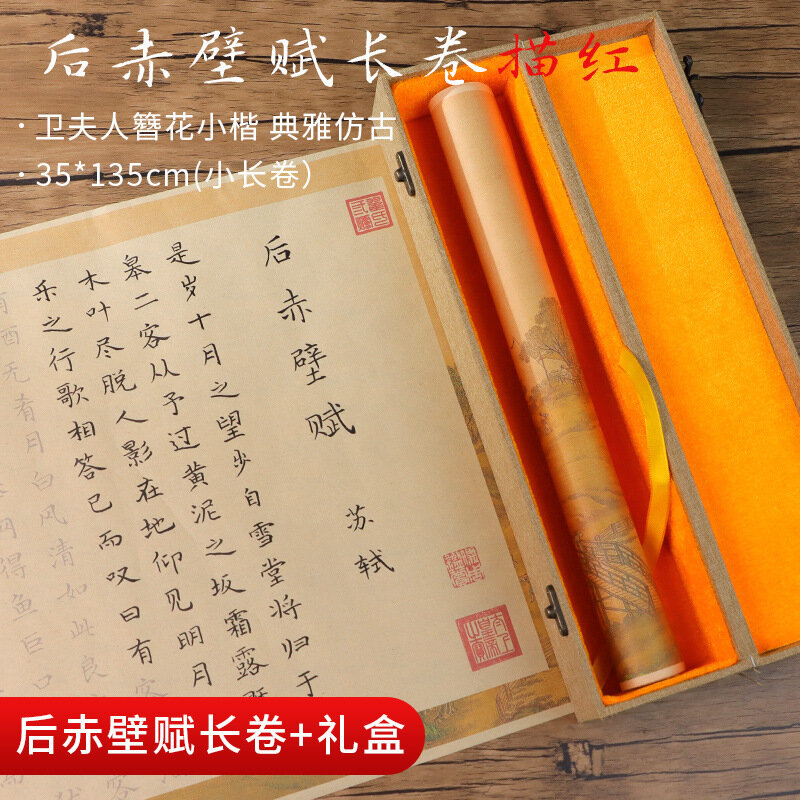 后赤壁赋长卷描红
·卫夫人簪花小楷 典雅仿古
·35*135cm(小长卷)
后赤壁赋
苏轼
是岁十月之望步自雪堂将归于
皋二客从予过黄泥之坂霜露既
木叶尽脱人影在地仰见明月
乐之行歌相答已而叹曰有客
有酒无肴月白风清如此良
网得鱼巨口
后赤壁赋长卷+礼盒